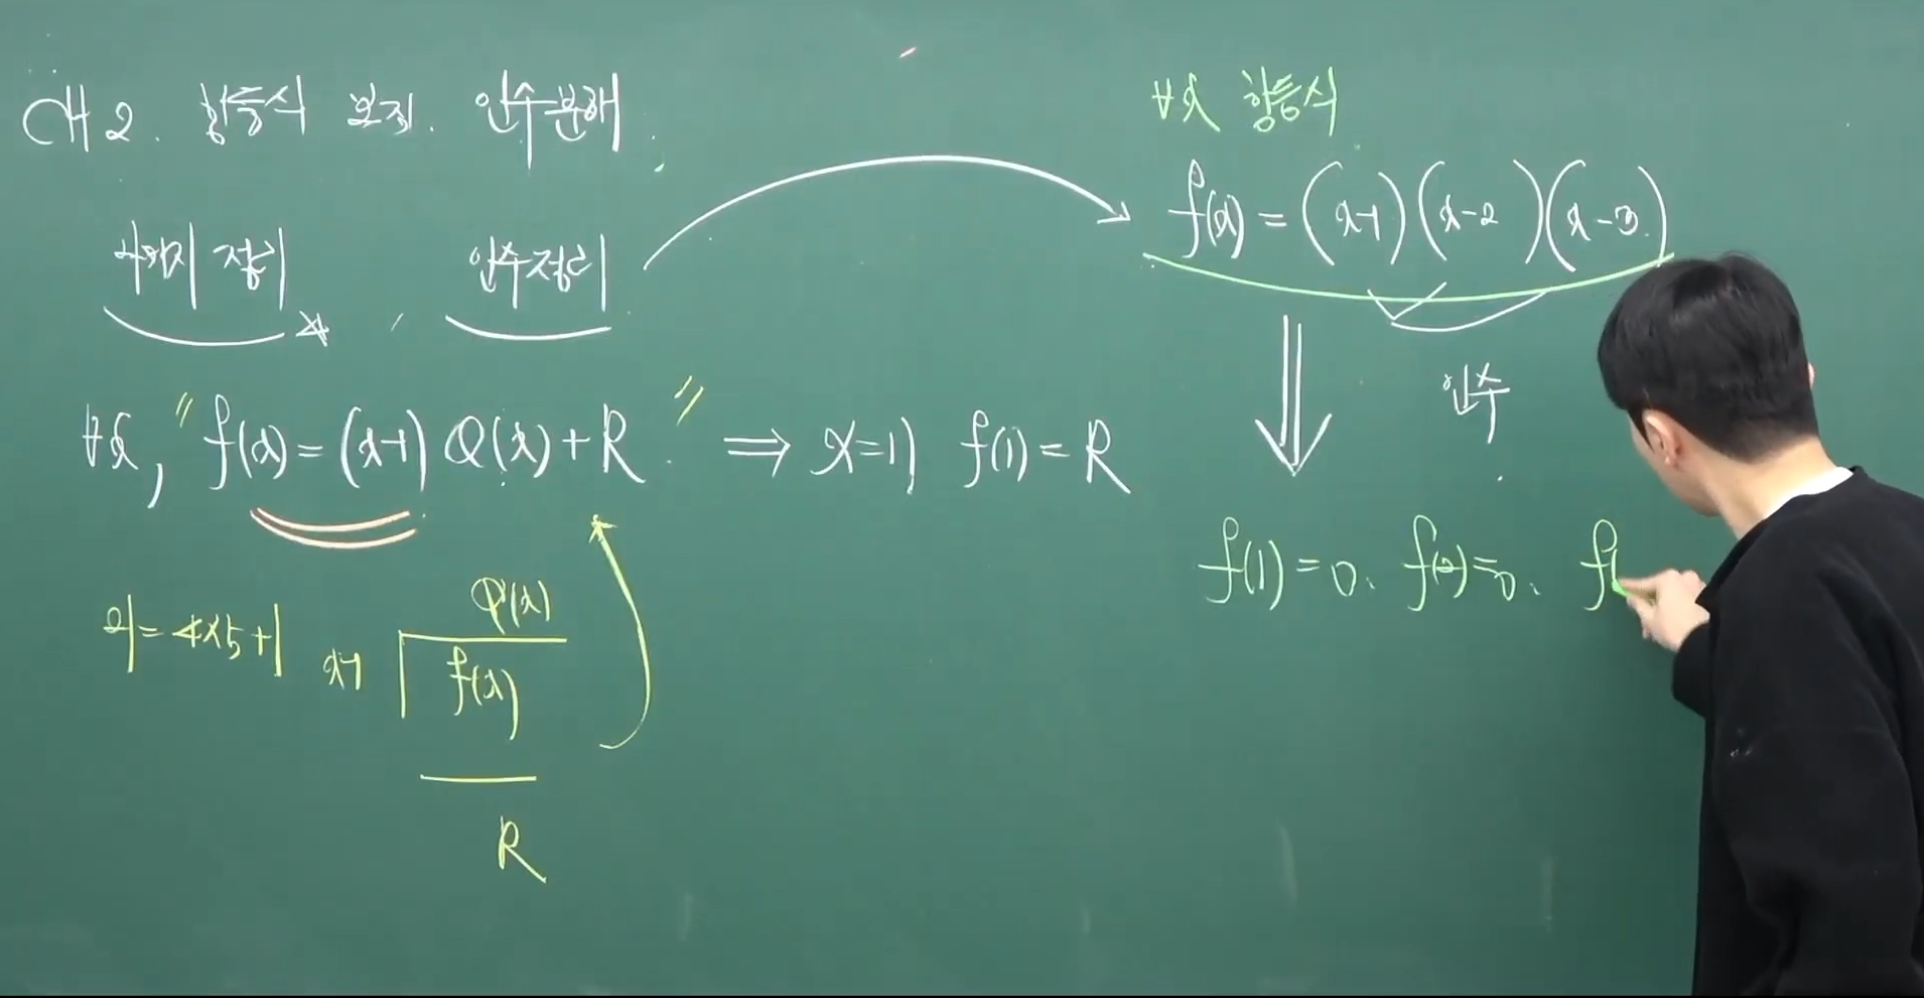 CH 2. 항등식 인수분해.
나머지 정리, 인수정리
∀x, "f(x) = (x-1) Q(x) + R." ⇒ x=1) f(1) = R
21 = 4×5+1
Q(x)
x-1 f(x)
R
∀x 항등식
f(x) = (x-1)(x-2)(x-3)
인수
f(1) = 0. f(2) = 0. f(